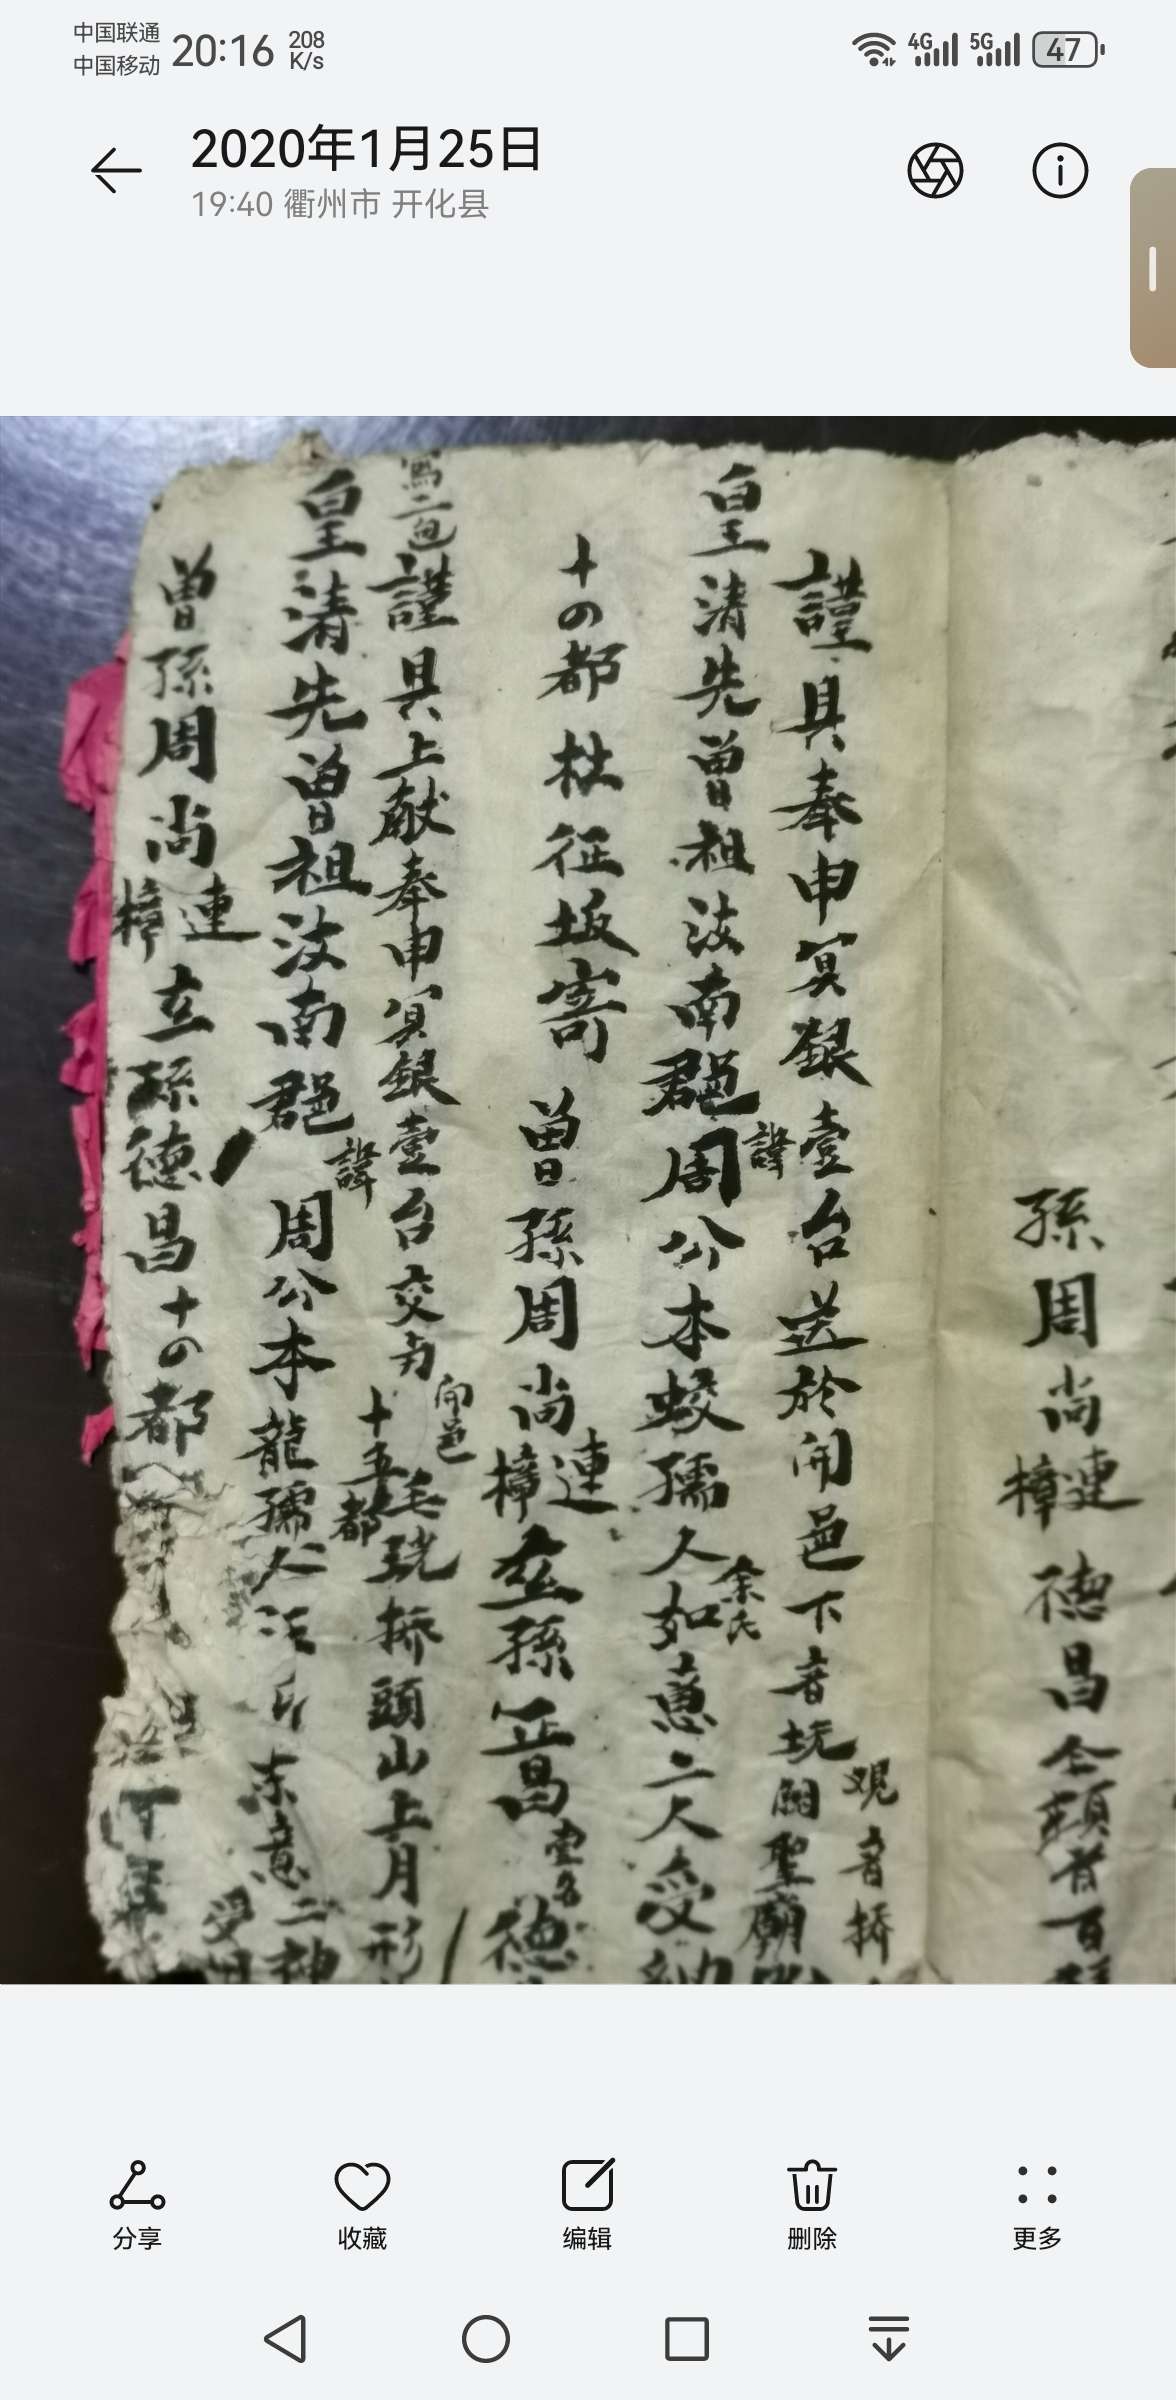 中国联通
中国移动
20:16
208
K/s
4G
5G
47
2020年1月25日
19:40 衢州市 开化县
孫周尚連樟德昌仝頓首百
謹具奉申冥銀壹台送於開邑下音坑關聖廟
观音桥
皇清先曾祖汝南郡諱周公本蛟孺人余氏如意二人受納
十四都杜征坂寄曾孫周尚連樟玄孫正昌
德
寫二包
謹具上献奉申冥銀壹台交与開邑十五都毛坑桥頭山上月形
皇清先曾祖汝南郡諱周公本龍孺人汪印东意二神受用
曾孫周尚連樟玄孫德昌十四都
分享
收藏
编辑
删除
更多